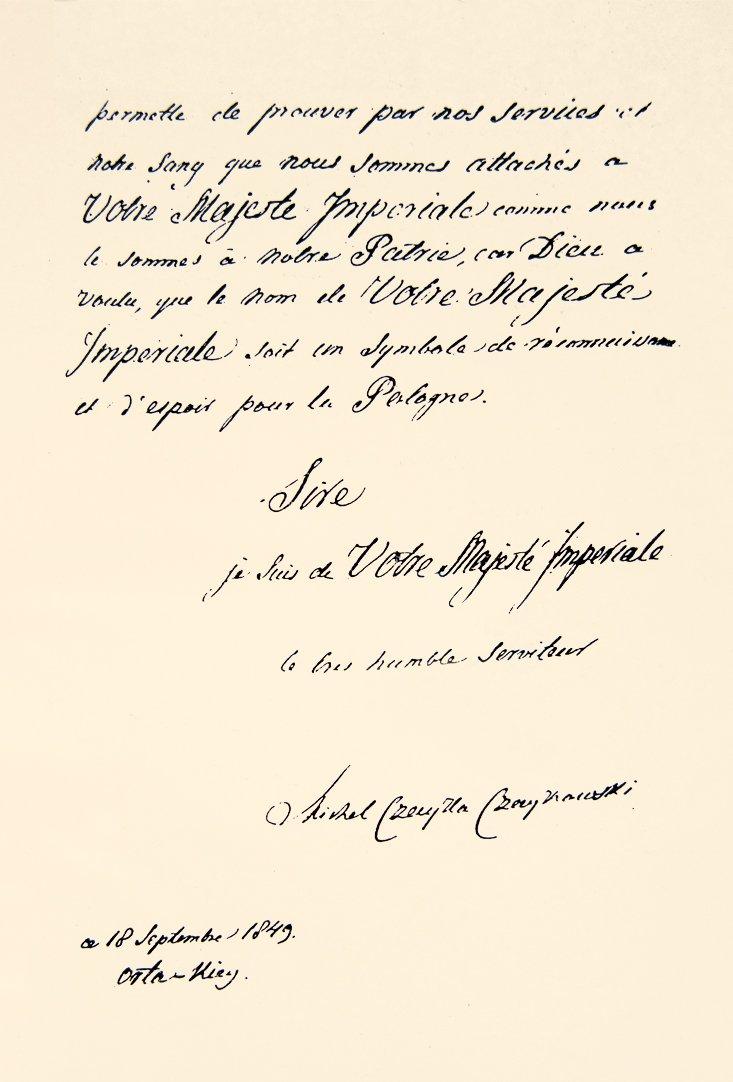 permette de prouver par nos services et
notre sang que nous sommes attachés a
Votre Majeste Imperiale comme nous
le sommes à notre Patrie, car Dieu a
voulu, que le nom de Votre Majesté
Imperiale soit un symbole de réconnaissance
et d'espoir pour la Pologne.
Sire
je suis de Votre Majesté Imperiale
le tres humble serviteur
Michel Czayka Czaykowski
ce 18 Septembre 1849.
Orta-Kiey.